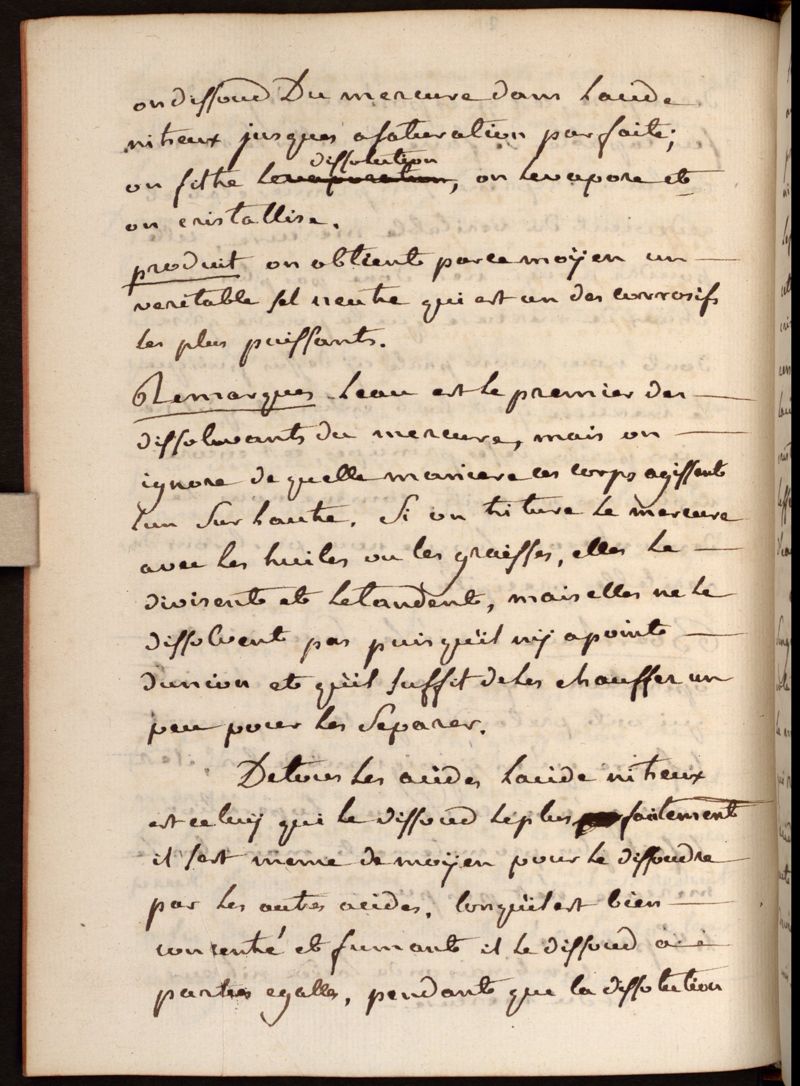 on dissoud Du mercure dans Lacide
nitreux jusques asaturation parfaite;
dissolution
on filtre levaporation, on levapore et
on cristallise.
produit on obtient parce moÿen un
veritable sel neutre qui est un des corrosifs
les plus puissants.
Remarques Leau est le premier des
dissolvants du mercure, mais on
ignore de quelle maniere ces corps agissent
lun Sur Lautre. Si on triture Le mercure
avec Les huiles ou les graisses, elles Le
divisent et Letandent, mais elles ne Le
dissolvent pas puisqu'il nÿ a point
dunion et qu'il suffit de Les chauffer un
peu pour Les Separer.
De tous Les acides Lacide nitreux
est celuy qui Le dissoud Le plus faitement
il sert meme de moÿen pour Le dissoudre
par Les autres acides. Lorsqu'il est bien
consentré et fumant il Le dissoud a
parties egalles, pendant que la dissolution